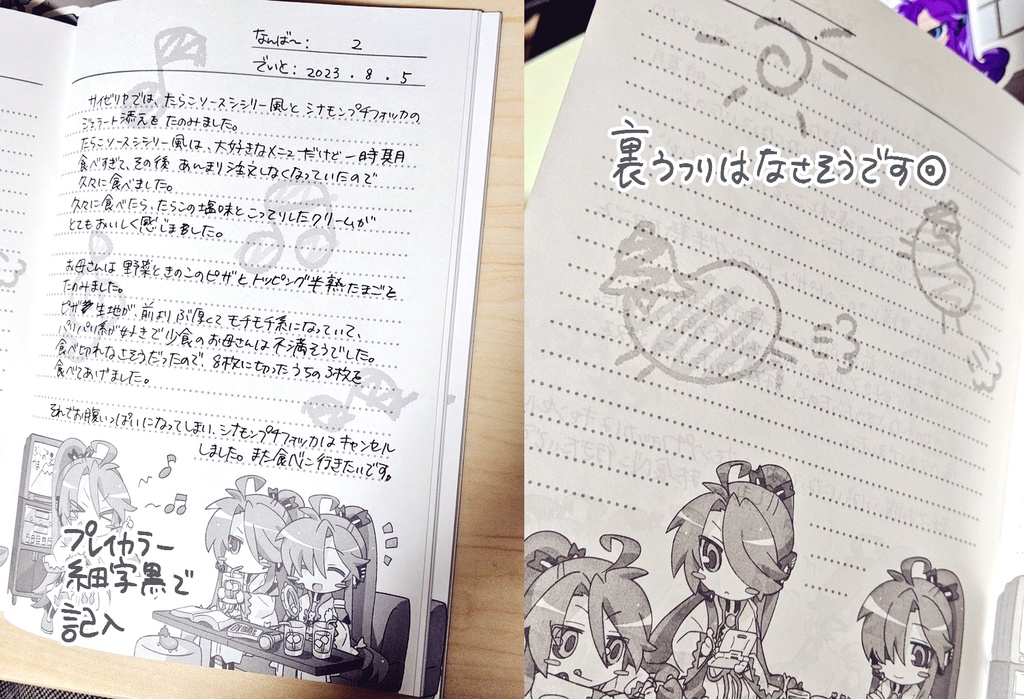 なんばー： 2
でいと：2023.8.5
サイゼリヤでは、たらこソースシシリー風と シナモンプチフォッカの
ジェラート添えを たのみました。
たらこソースシシリー風は、大好きなメニューだけど一時期
食べすぎて、その後、あんまり注文しなくなっていたので
久々に食べました。
久々に食べたら、たらこの塩味とこってりしたクリームが
とてもおいしく感じました。
お母さんは 野菜ときのこのピザ と トッピング半熟たまごを
たのみました。
ピザ生地が、前より ぶ厚くて モチモチ系になっていて、
パリパリ系が好きで少食のお母さんは不満そうでした。
食べ切れなさそうだったので、8枚に切ったうちの3枚を
食べてあげました。
それでお腹いっぱいになってしまい、シナモンプチフォッカは キャンセル
しました。また食べに行きたいです。
プレイカラー
細字黒で
記入
裏うつりはなさそうです◎